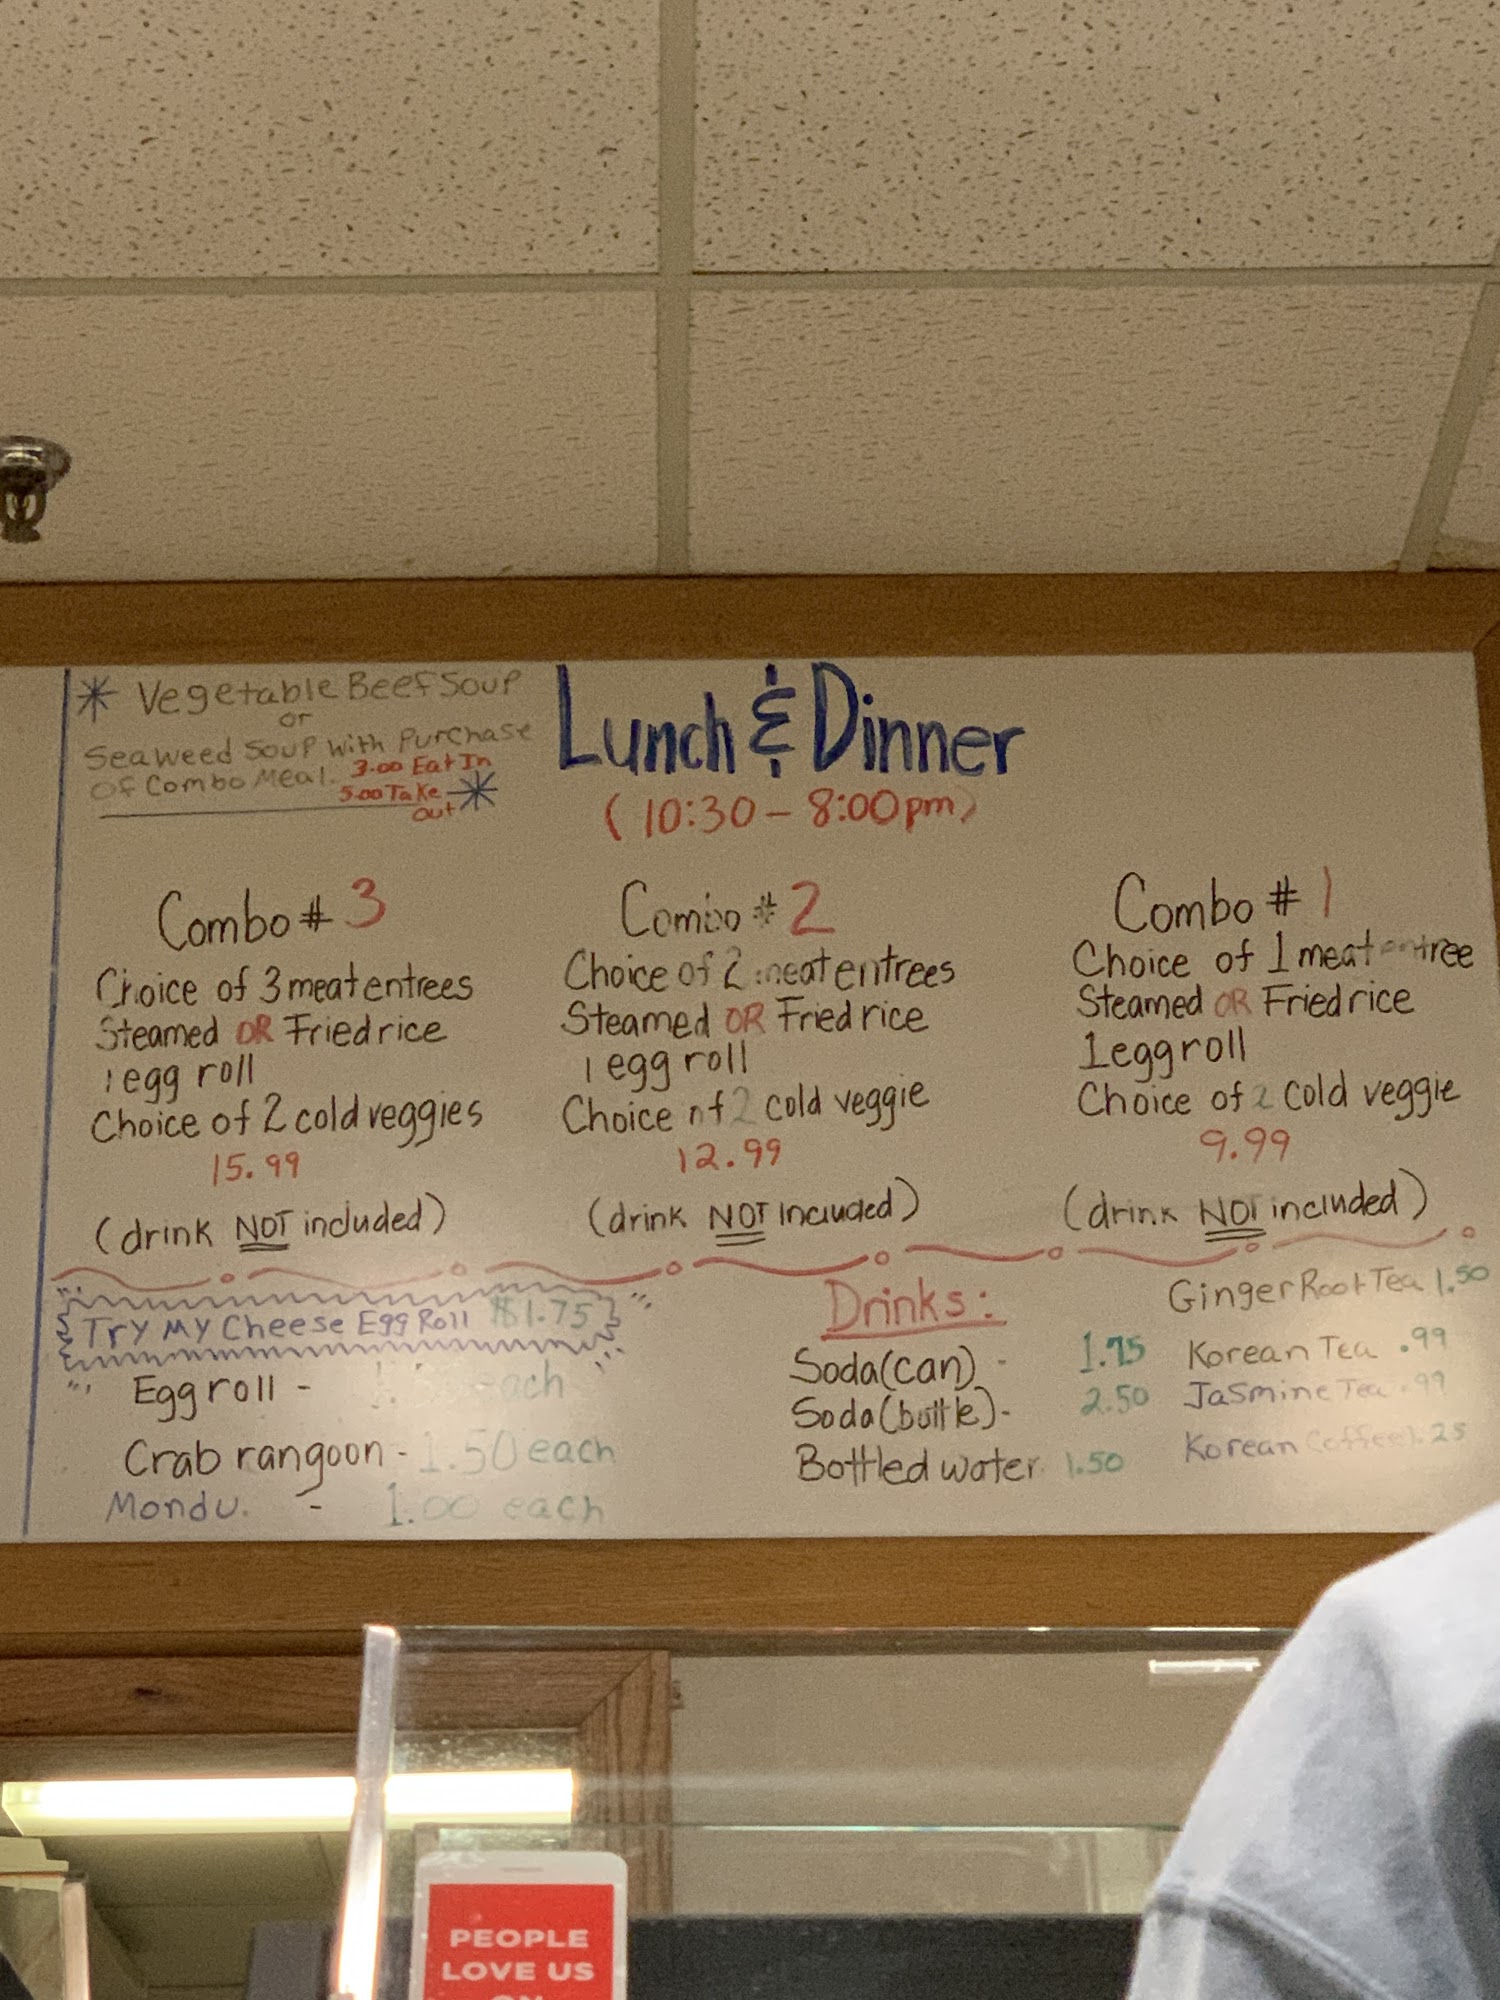 Vegetable Beef Soup
or
Seaweed Soup with Purchase
Of Combo Meal. 3.00 Eat In
5.00 Take
out
Lunch & Dinner
(10:30 - 8:00pm)
Combo # 3
Choice of 3 meat entrees
Steamed OR Fried rice
1 egg roll
Choice of 2 cold veggies
15.99
(drink NOT included)
Combo # 2
Choice of 2 meat entrees
Steamed OR Fried rice
1 egg roll
Choice of 2 cold veggie
12.99
(drink NOT included)
Combo # 1
Choice of 1 meat entree
Steamed OR Fried rice
1 egg roll
Choice of 2 cold veggie
9.99
(drink NOT included)
Try My Cheese Egg Roll $1.75
Egg roll - each
Crab rangoon - 1.50 each
Mondu. - 1.00 each
Drinks:
Soda (can) - 1.75
Soda (bottle) - 2.50
Bottled water 1.50
Ginger Root Tea 1.50
Korean Tea .99
Jasmine Tea .99
Korean Coffee 1.25
PEOPLE
LOVE US